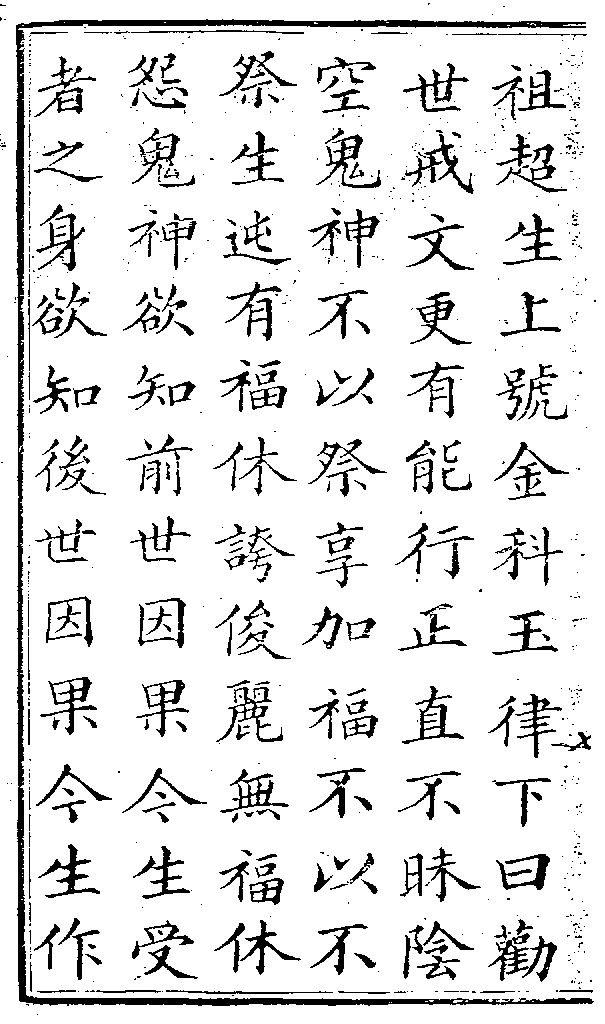 祖超生上號金科玉律下曰勸
世戒文更有能行正直不昧陰
空鬼神不以祭享加福不以不
祭生迍有福休誇俊麗無福休
怨鬼神欲知前世因果今生受
者之身欲知後世因果今生作